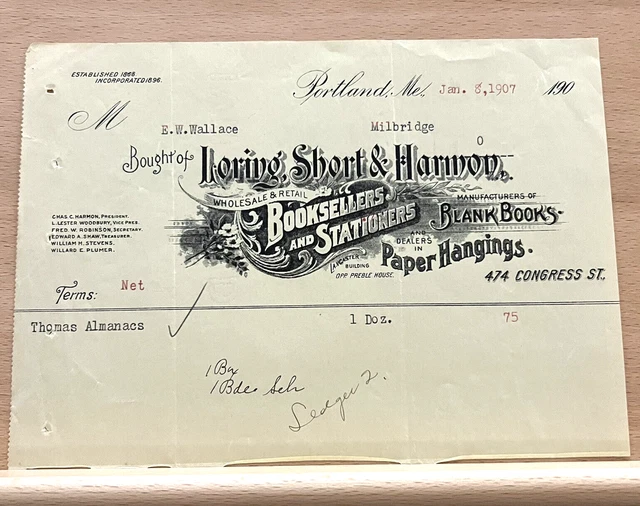 ESTABLISHED 1868.
INCORPORATED 1896.
Portland, Me., Jan. 8,1907 190
M
E.W.Wallace Milbridge
O
Bought of Loring, Short & Harmon,
WHOLESALE & RETAIL
BOOKSELLERS
AND STATIONERS
MANUFACTURERS OF
BLANK BOOKS
AND
DEALERS
IN
Paper Hangings.
LANCASTER
BUILDING
OPP. PREBLE HOUSE.
474 CONGRESS ST.,
CHAS. C. HARMON, PRESIDENT.
L. LESTER WOODBURY, VICE PRES.
FRED W. ROBINSON, SECRETARY.
EDWARD A. SHAW, TREASURER.
WILLIAM H. STEVENS.
WILLARD E. PLUMER.
Terms: Net
Thomas Almanacs 1 Doz. 75
1 Bx
1 Bde Sch
Ledger 2.